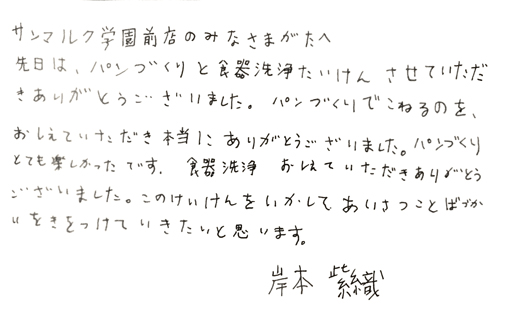 サンマルク学園前店のみなさまがたへ
先日は、パンづくりと食器洗浄たいけん させていただ
きありがとうございました。パンづくりでこねるのを、
おしえていただき本当にありがとうございました。パンづくり
とても楽しかったです。食器洗浄 おしえていただきありがとう
ございました。このけいけんをいかしてあいさつことばづか
いをきをつけていきたいと思います。
岸本 紫織